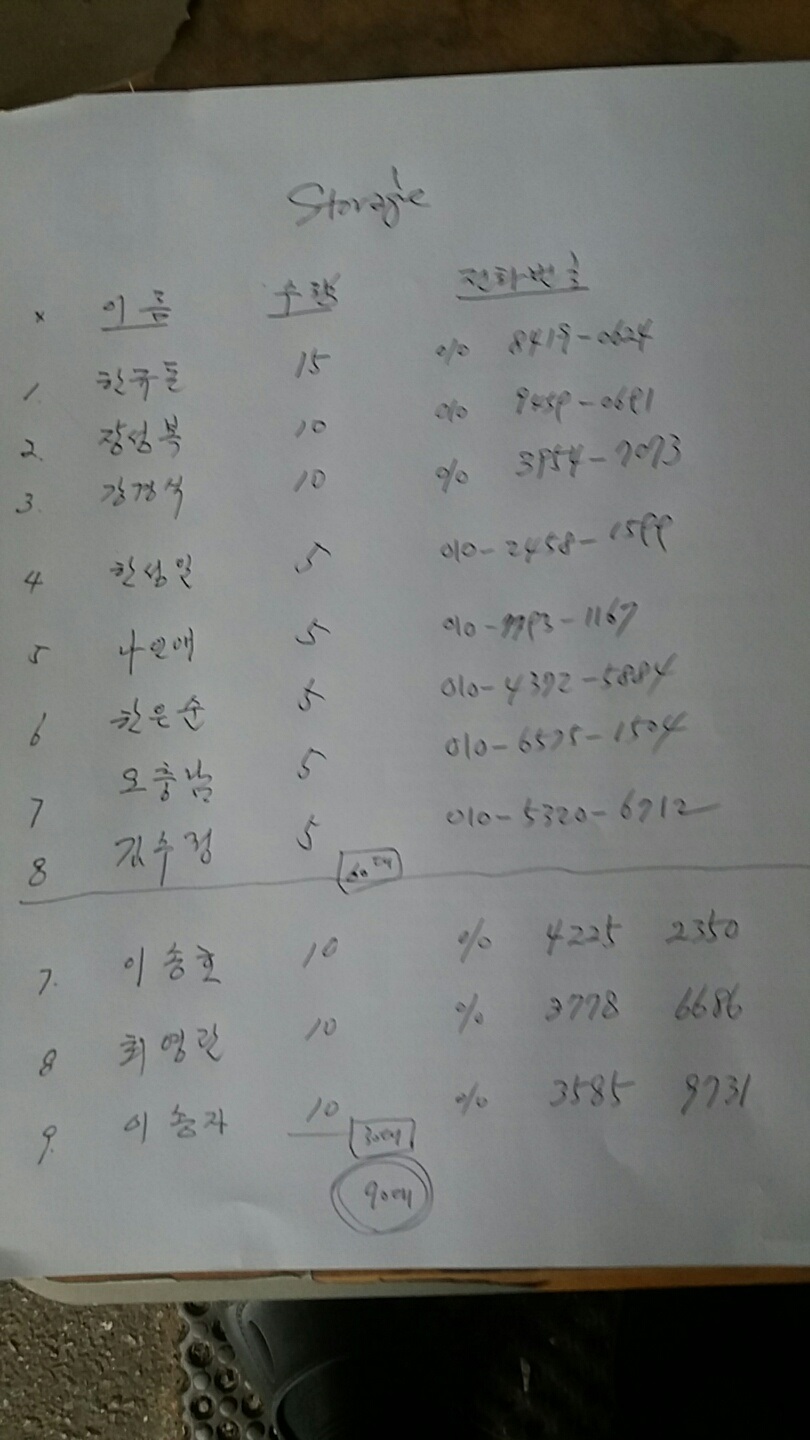 Storage
x 이름 수량 전화번호
1. 한규돈 15 010 8419-0624
2. 장성복 10 010 9459-0691
3. 강경석 10 010 3954-7073
4 한성일 5 010-2458-1599
5 나인애 5 010-7793-1167
6 한은순 5 010-4392-5884
7 오충남 5 010-6575-1504
8 김수정 5 010-5320-6712
60대
7. 이송호 10 010 4225 2350
8 최영란 10 010 3778 6686
9. 이송자 10 010 3585 9731
30대
90대